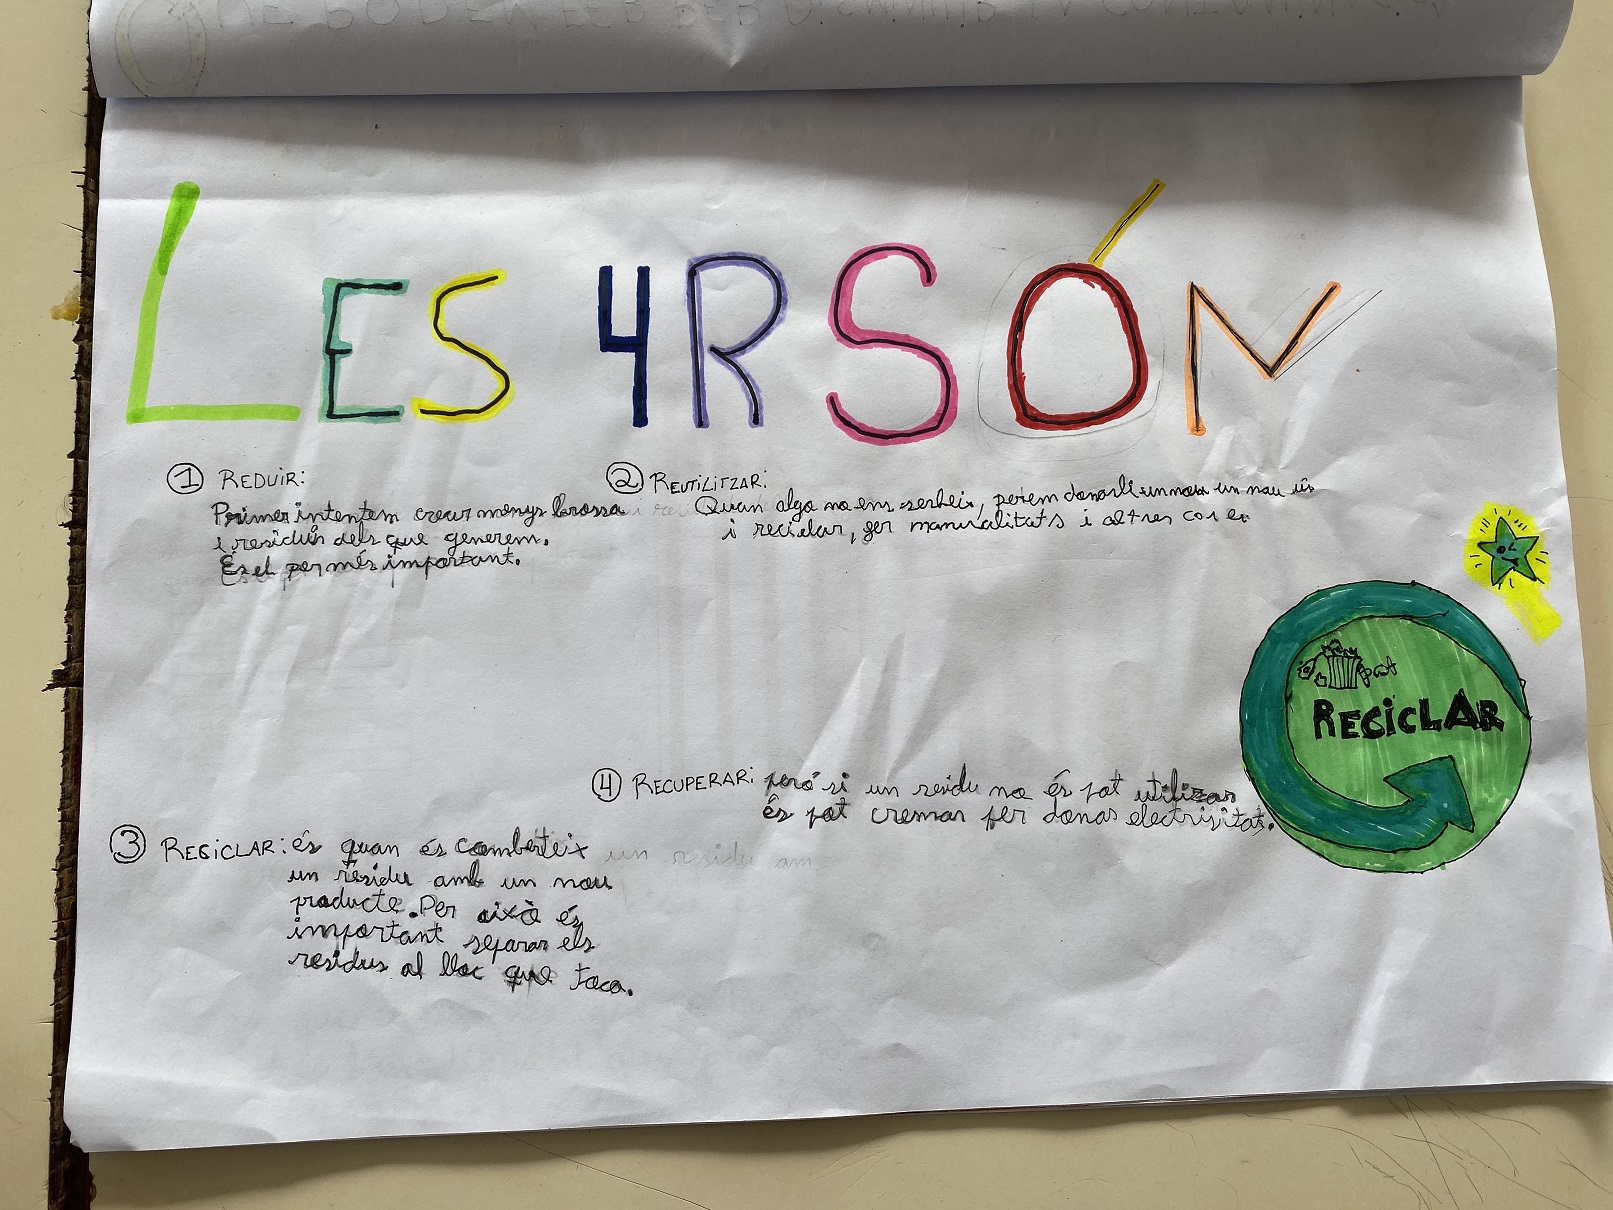 LES 4RS SÓN
① REDUIR:
Primer intentem crear menys brossa
i residus dels que generem.
És el per més important.
② REUTILITZAR:
Quan algo no ens serbeix, podem donarli un nou un nou ús
i reciclar, fer manualitats i altres
RECICLAR
④ RECUPERAR: però si un residu no és pot utilizar
és pot cremar per donar electrisitat.
③ RECICLAR: és quan és comberteix
un residu amb un nou
producte. Per això és
important separar els
residus al lloc que toca.